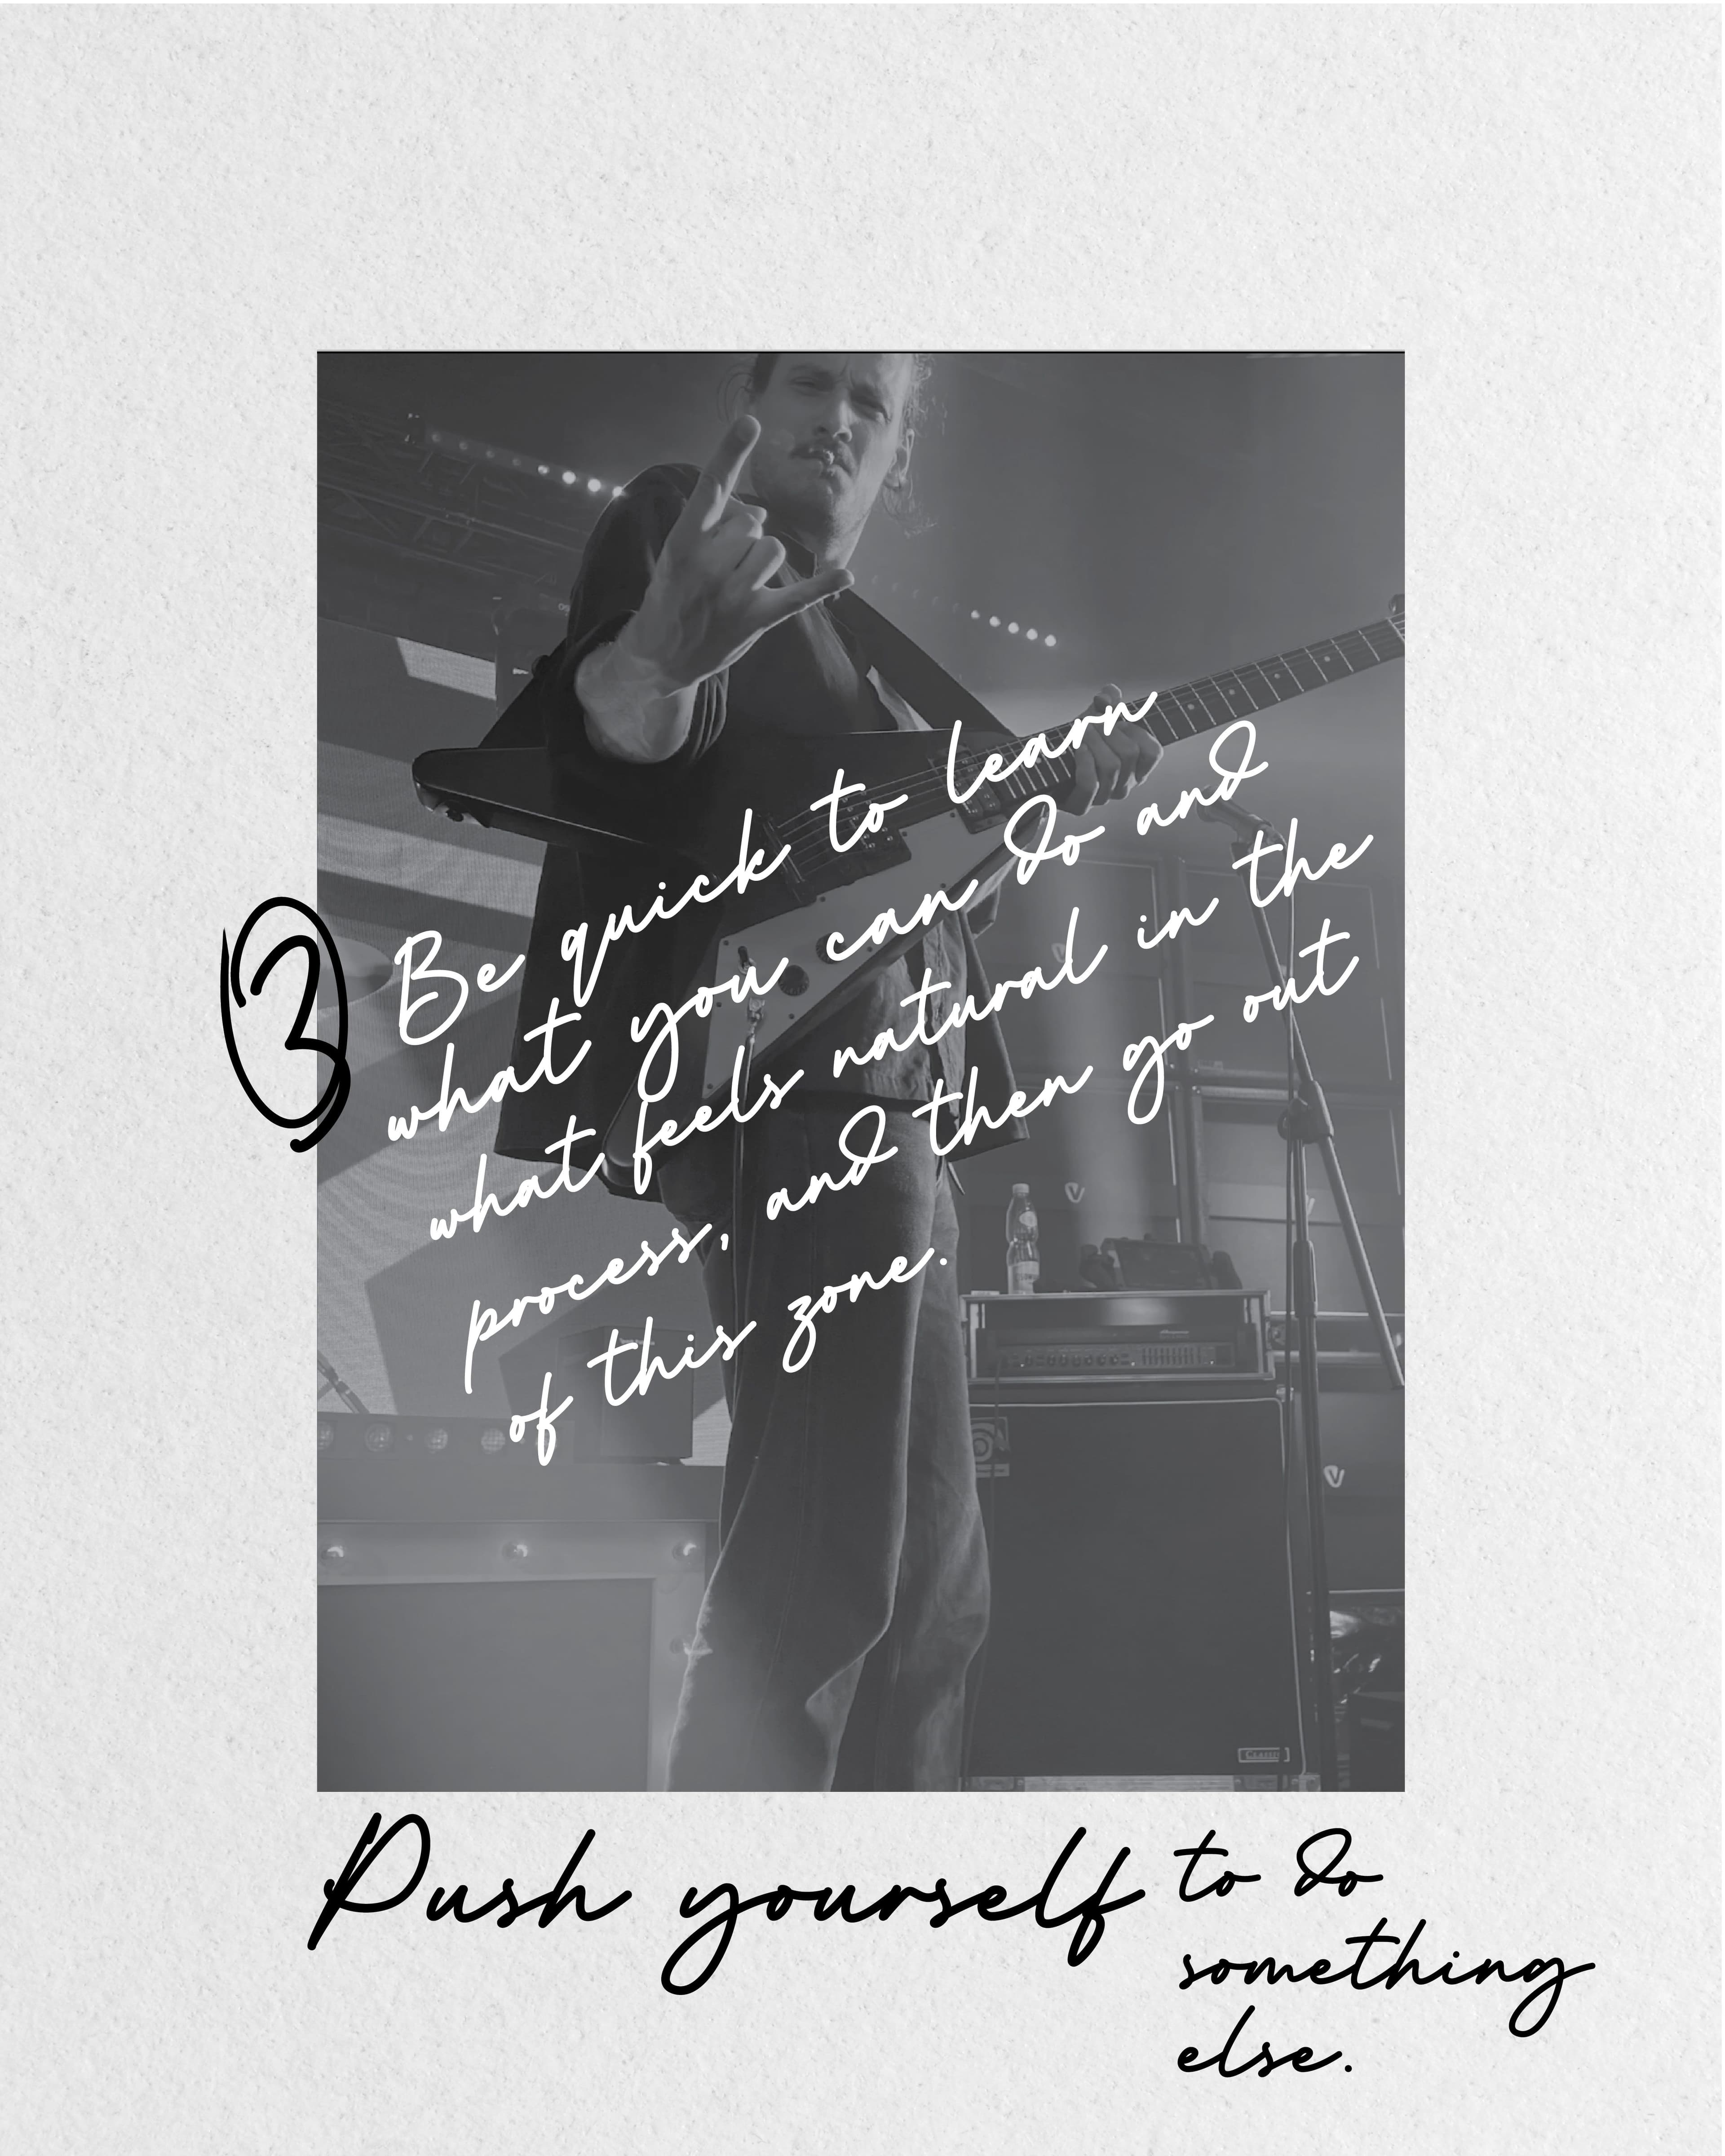 3
Be quick to learn
what you can do and
what feels natural in the
process, and then go out
of this zone.
Ampeg
CLASSIC
Push yourself to do
something
else.